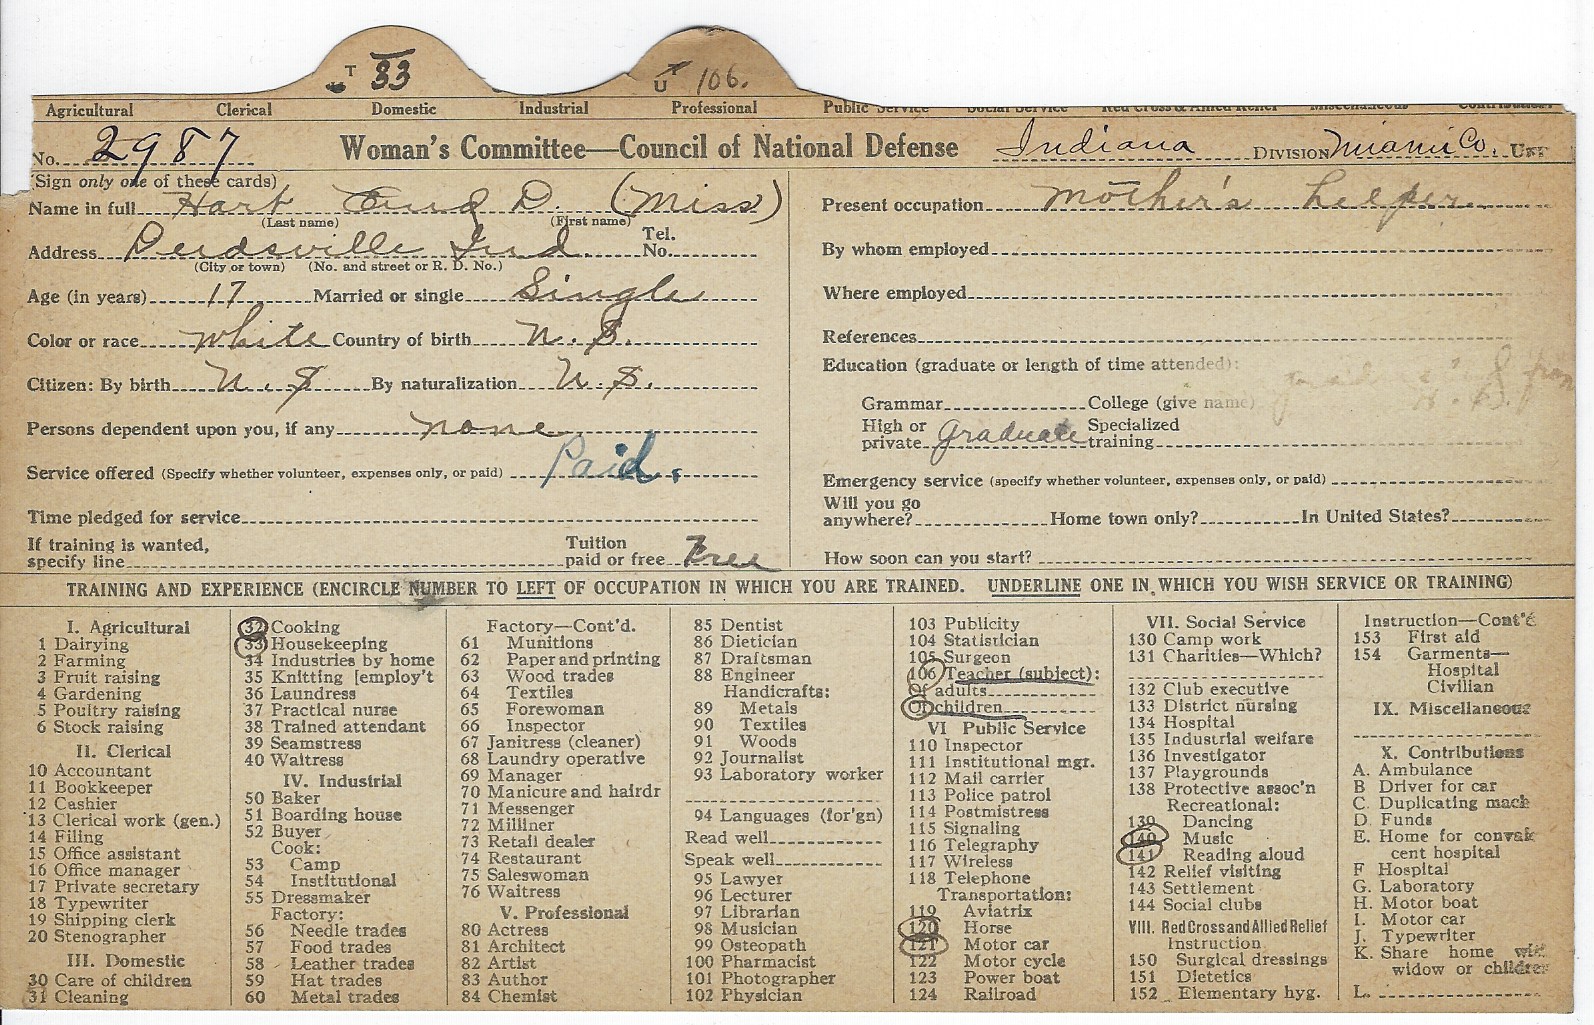 T 33
U T 106.
Agricultural Clerical Domestic Industrial Professional Public Service Social Service Red Cross & Allied Relief Miscellaneous Contributions
No. 2987 Woman's Committee—Council of National Defense Indiana DIVISION Miami Co. UNIT
(Sign only one of these cards)
Name in full Hart Enid D. (Miss)
(Last name) (First name)
Address Deedsville Ind. Tel. No.
(City or town) (No. and street or R. D. No.)
Age (in years) 17 Married or single Single
Color or race White Country of birth U.S.
Citizen: By birth U.S By naturalization U.S.
Persons dependent upon you, if any none
Service offered (Specify whether volunteer, expenses only, or paid) Paid.
Time pledged for service
If training is wanted,
specify line Tuition paid or free Free
Present occupation Mother's helper.
By whom employed
Where employed
References
Education (graduate or length of time attended):
Grammar College (give name)
High or private graduate Specialized training
Emergency service (specify whether volunteer, expenses only, or paid)
Will you go
anywhere? Home town only? In United States?
How soon can you start?
TRAINING AND EXPERIENCE (ENCIRCLE NUMBER TO LEFT OF OCCUPATION IN WHICH YOU ARE TRAINED. UNDERLINE ONE IN WHICH YOU WISH SERVICE OR TRAINING)
I. Agricultural
1 Dairying
2 Farming
3 Fruit raising
4 Gardening
5 Poultry raising
6 Stock raising
II. Clerical
10 Accountant
11 Bookkeeper
12 Cashier
13 Clerical work (gen.)
14 Filing
15 Office assistant
16 Office manager
17 Private secretary
18 Typewriter
19 Shipping clerk
20 Stenographer
III. Domestic
30 Care of children
31 Cleaning
32 Cooking
33 Housekeeping
34 Industries by home
35 Knitting [employ't
36 Laundress
37 Practical nurse
38 Trained attendant
39 Seamstress
40 Waitress
IV. Industrial
50 Baker
51 Boarding house
52 Buyer
Cook:
53 Camp
54 Institutional
55 Dressmaker
Factory:
56 Needle trades
57 Food trades
58 Leather trades
59 Hat trades
60 Metal trades
Factory—Cont'd.
61 Munitions
62 Paper and printing
63 Wood trades
64 Textiles
65 Forewoman
66 Inspector
67 Janitress (cleaner)
68 Laundry operative
69 Manager
70 Manicure and hairdr
71 Messenger
72 Milliner
73 Retail dealer
74 Restaurant
75 Saleswoman
76 Waitress
V. Professional
80 Actress
81 Architect
82 Artist
83 Author
84 Chemist
85 Dentist
86 Dietician
87 Draftsman
88 Engineer
Handicrafts:
89 Metals
90 Textiles
91 Woods
92 Journalist
93 Laboratory worker
94 Languages (for'gn)
Read well
Speak well
95 Lawyer
96 Lecturer
97 Librarian
98 Musician
99 Osteopath
100 Pharmacist
101 Photographer
102 Physician
103 Publicity
104 Statistician
105 Surgeon
106 Teacher (subject):
Of adults
Of children
VI Public Service
110 Inspector
111 Institutional mgr.
112 Mail carrier
113 Police patrol
114 Postmistress
115 Signaling
116 Telegraphy
117 Wireless
118 Telephone
Transportation:
119 Aviatrix
120 Horse
121 Motor car
122 Motor cycle
123 Power boat
124 Railroad
VII. Social Service
130 Camp work
131 Charities—Which?
132 Club executive
133 District nursing
134 Hospital
135 Industrial welfare
136 Investigator
137 Playgrounds
138 Protective assoc'n
Recreational:
139 Dancing
140 Music
141 Reading aloud
142 Relief visiting
143 Settlement
144 Social clubs
VIII. Red Cross and Allied Relief
Instruction
150 Surgical dressings
151 Dietetics
152 Elementary hyg.
Instruction—Cont'd
153 First aid
154 Garments—
Hospital
Civilian
IX. Miscellaneous
X. Contributions
A. Ambulance
B Driver for car
C. Duplicating mach
D. Funds
E. Home for convales
cent hospital
F Hospital
G. Laboratory
H. Motor boat
I. Motor car
J. Typewriter
K. Share home with
widow or children
L.